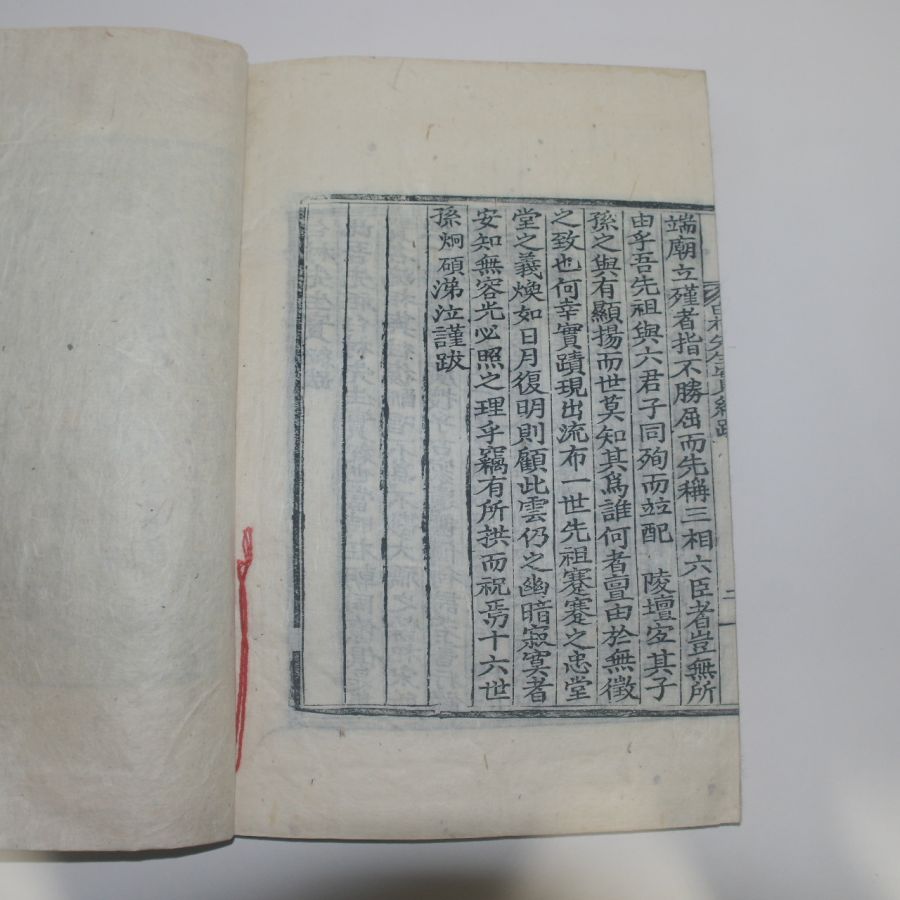 端廟立殣者指不勝屈而先稱三相六臣者豈無所
由乎吾先祖與六君子同殉而並配 陵壇㝎其子
孫之與有顯揚而世莫知其爲誰何者亶由於無徵
之致也何幸實蹟現出流布一世先祖蹇蹇之忠堂
堂之義煥如日月復明則顧此雲仍之幽暗寂寞者
安知無容光必照之理乎竊有所拱而祝焉十六世
孫炯碩涕泣謹跋